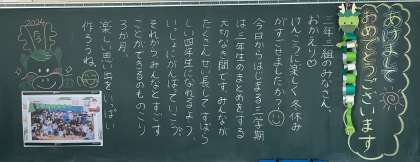 あけまして
おめでとうございます
三年二組のみなさん、
おかえり♡
けんこうに楽しく冬休み
がすごせましたか？
今日からはじまる三学期
は三年生のまとめをする
大切な期間です。みんなが
たくさんせい長してすばら
しい四年生になれるよう、
いっしょにがんばっていこう。
それからみんなとすごす
ことができるのものこり
3か月、
楽しい思い出をいっぱい
作ろうね。
2024